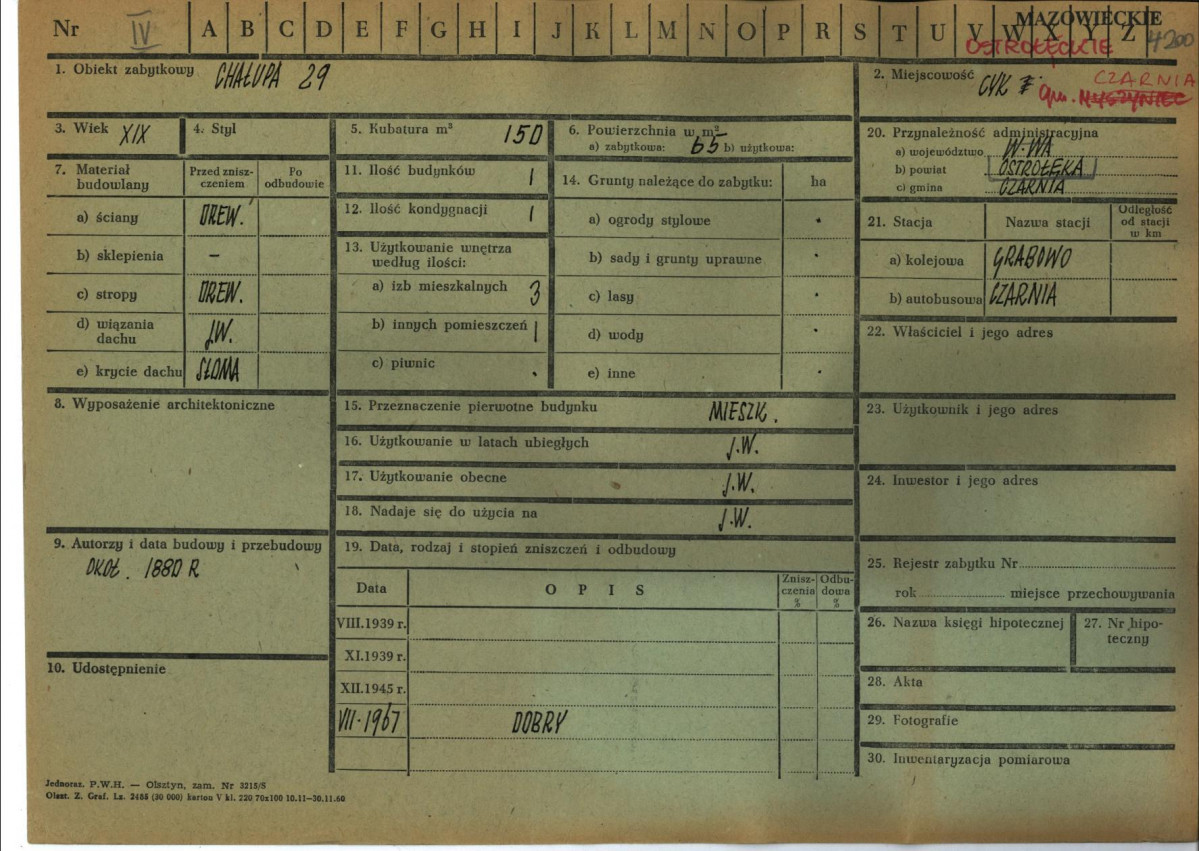 Nr IV A B C D E F G H I J K L M N O P R S T U V W X Y Z
MAZOWIECKIE
OSTROŁĘCKIE 4200
1. Obiekt zabytkowy CHAŁUPA 29
2. Miejscowość CYK
CZARNIA
gm. MYSZYNIEC
3. Wiek XIX
4. Styl
5. Kubatura m³ 150
6. Powierzchnia w m²
a) zabytkowa: 65 b) użytkowa:
7. Materiał budowlany
Przed znisz-
czeniem
Po
odbudowie
a) ściany DREW.
b) sklepienia –
c) stropy DREW.
d) wiązania
dachu J.W.
e) krycie dachu SŁOMA
8. Wyposażenie architektoniczne
9. Autorzy i data budowy i przebudowy
OKOŁ. 1880 R
10. Udostępnienie
11. Ilość budynków 1
12. Ilość kondygnacji 1
13. Użytkowanie wnętrza
według ilości:
a) izb mieszkalnych 3
b) innych pomieszczeń 1
c) piwnic .
14. Grunty należące do zabytku: ha
a) ogrody stylowe .
b) sady i grunty uprawne .
c) lasy .
d) wody .
e) inne .
15. Przeznaczenie pierwotne budynku MIESZK.
16. Użytkowanie w latach ubiegłych J.W.
17. Użytkowanie obecne J.W.
18. Nadaje się do użycia na J.W.
19. Data, rodzaj i stopień zniszczeń i odbudowy
Data OPIS
Znisz-
czenia
%
Odbu-
dowa
%
VIII.1939 r.
XI.1939 r.
XII.1945 r.
VII.1967 DOBRY
20. Przynależność administracyjna
a) województwo W-WA
b) powiat OSTROŁĘKA
c) gmina CZARNIA
21. Stacja Nazwa stacji
Odległość
od stacji
w km
a) kolejowa GRABOWO
b) autobusowa CZARNIA
22. Właściciel i jego adres
23. Użytkownik i jego adres
24. Inwestor i jego adres
25. Rejestr zabytku Nr
rok miejsce przechowywania
26. Nazwa księgi hipotecznej
27. Nr hipo-
teczny
28. Akta
29. Fotografie
30. Inwentaryzacja pomiarowa
Jednoraz. P.W.H. — Olsztyn, zam. Nr 3215/S
Olszt. Z. Graf. Lz. 2466 (30 000) karton V kl. 220 70x100 10.11—30.11.60